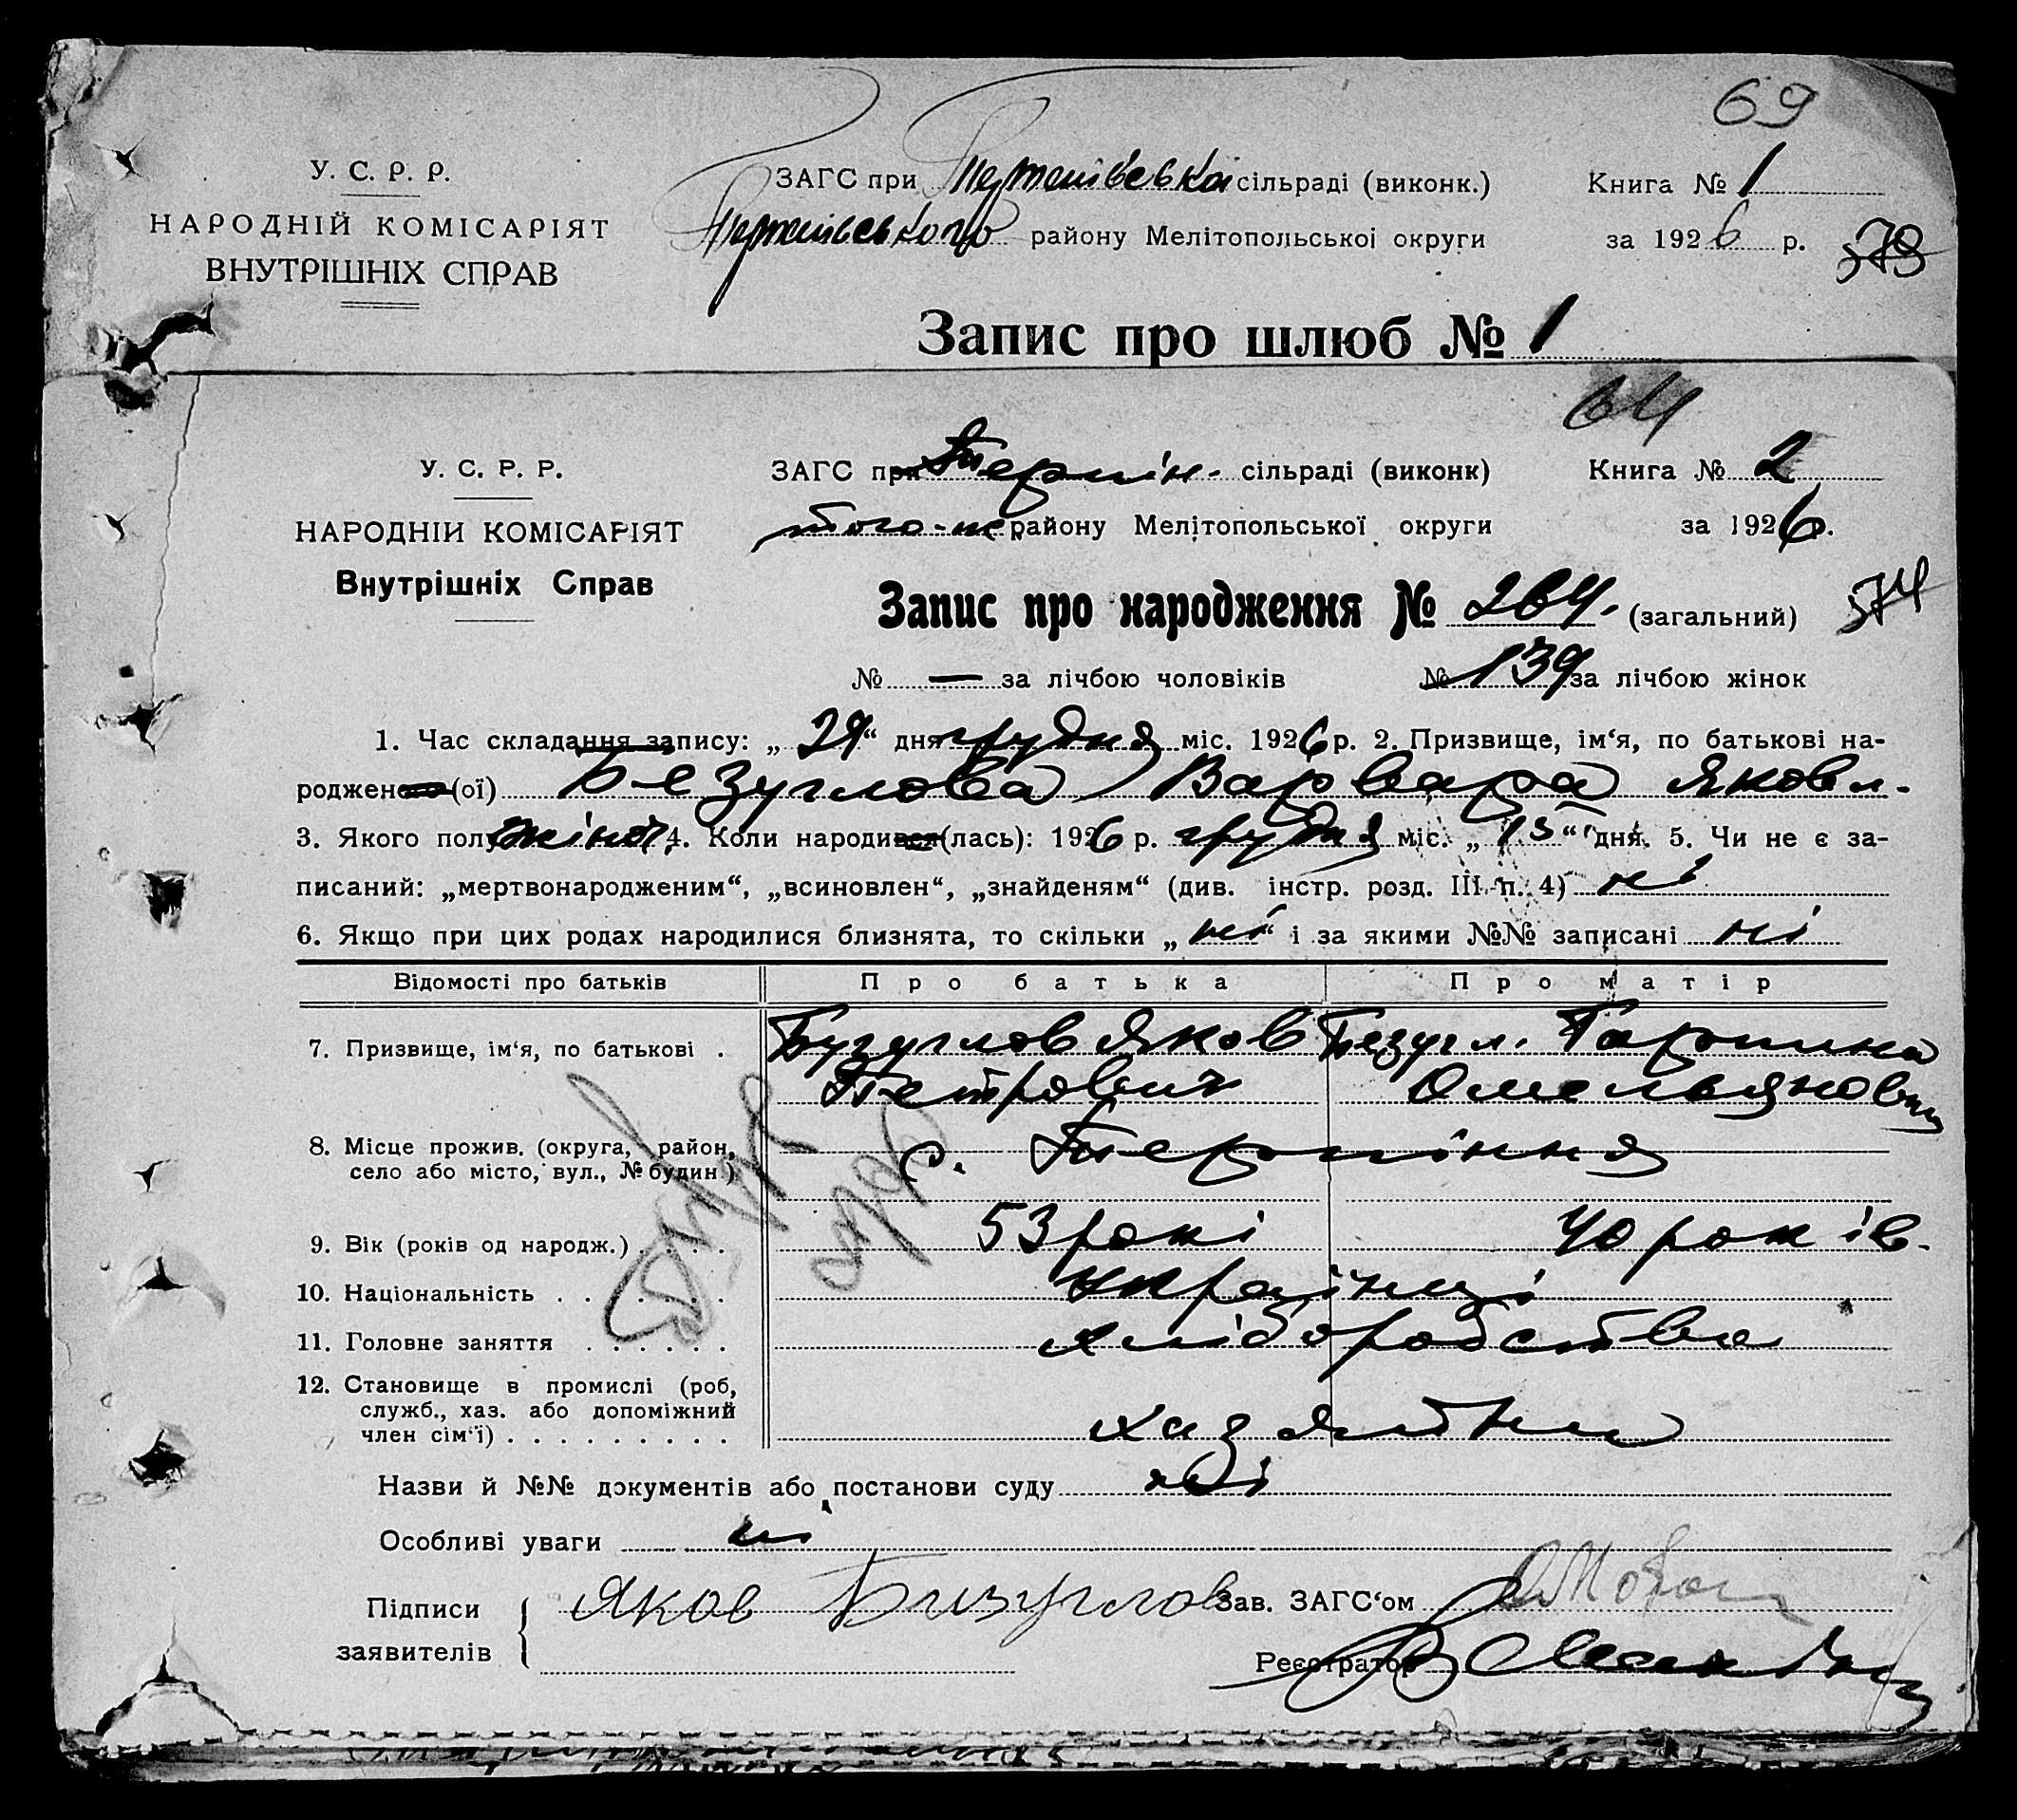 69
У. С. Р. Р.
НАРОДНІЙ КОМІСАРІЯТ
ВНУТРІШНІХ СПРАВ
ЗАГС при сільраді (виконк.) Книга № 1
району Мелітопольської округи за 1926 р.
573
Запис про шлюб № 1
64
У. С. Р. Р.
НАРОДНІЙ КОМІСАРІЯТ
Внутрішніх Справ
ЗАГС при Терпін- сільраді (виконк) Книга № 2
того-ж району Мелітопольської округи за 1926 р.
Запис про народження № 264. (загальний)
574
№ — за лічбою чоловіків № 139 за лічбою жінок
1. Час складання запису: „29“ дня грудня міс. 1926 р. 2. Призвище, ім‘я, по батькові на-
родженого(ої) Безуглова Варвара Яковл.
3. Якого полу жіноч. 4. Коли народився(лась): 1926 р. грудня міс. „15“ дня. 5. Чи не є за-
писаний: „мертвонародженим“, „всиновлен“, „знайденям“ (див. інстр. розд. III п. 4) ні
6. Якщо при цих родах народилися близнята, то скільки „ні“ і за якими №№ записані ні
Відомості про батьків Про батька Про матір
7. Призвище, ім‘я, по батькові . Бузуглов Яков Безугл. Гарпина
Петрович Омельянов
8. Місце прожив. (округа, район, село або місто, вул., № будин.) с. Терпіння
9. Вік (років од народж.) . . . . 53 рокі 40 років.
10. Національність . . . . . . . українці
11. Головне заняття . . . . . . хліборобство
12. Становище в промислі (роб,
служб., хаз. або допоміжний
член сім‘ї) . . . . . . . . .
Назви й №№ документів або постанови суду
Особливі уваги ні
Підписи заявителів Яков Бизуглов Зав. ЗАГС‘ом
Реєстратор